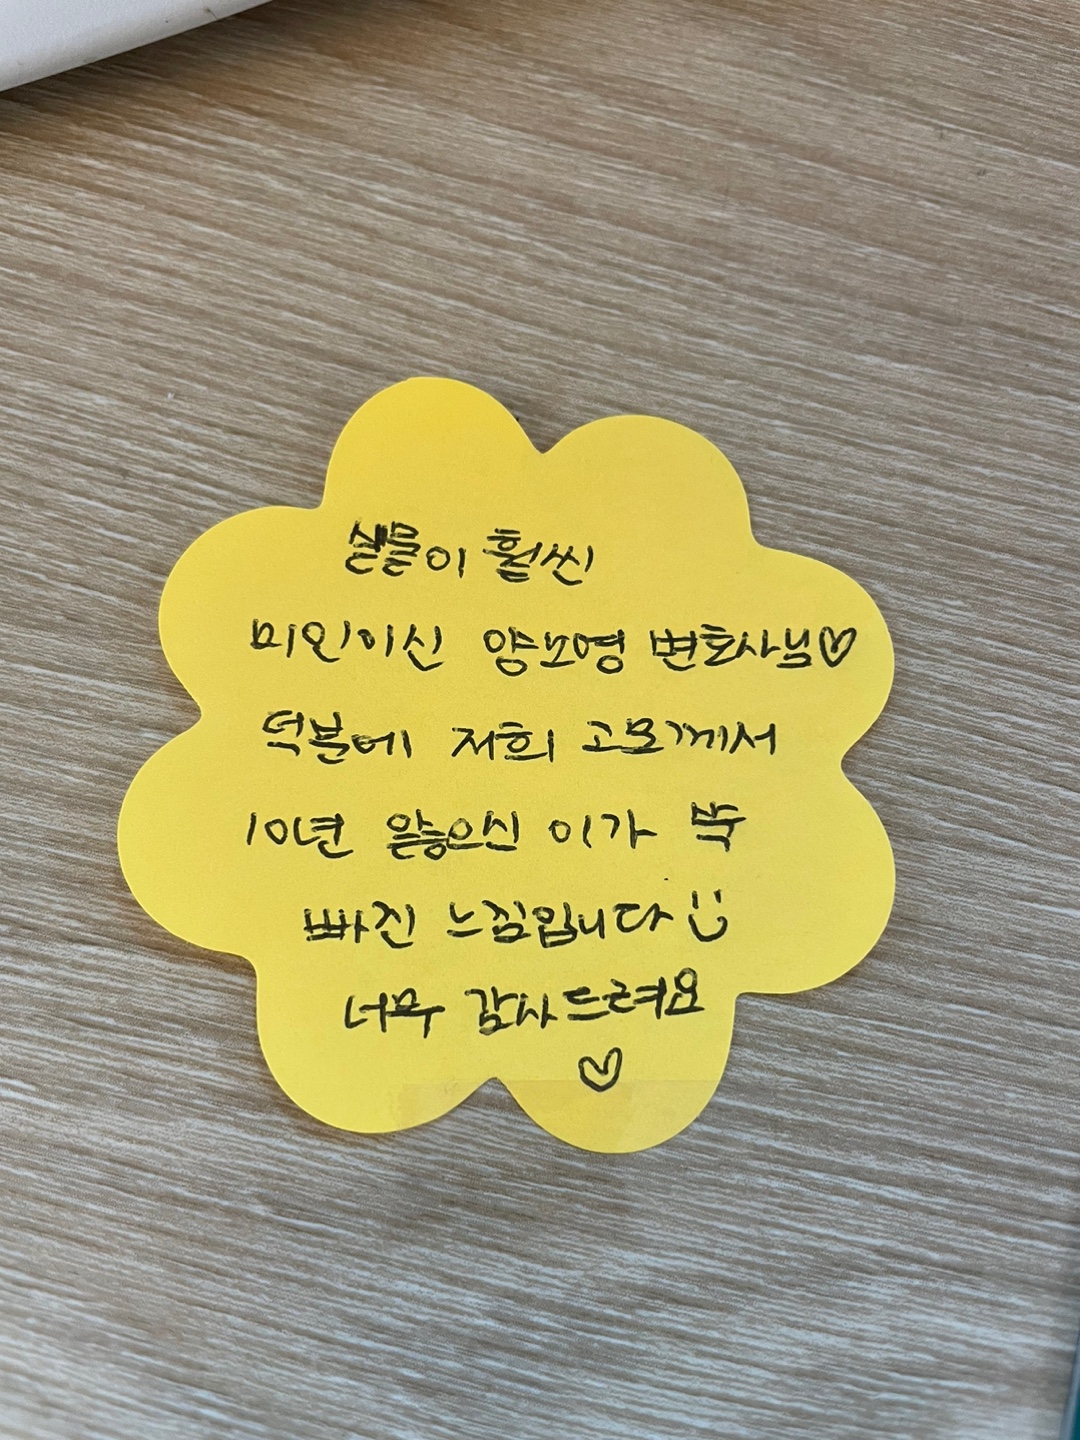 실물이 훨씬
미인이신 양소영 변호사님♡
덕분에 저희 고모께서
10년 앓으신 이가 쑥
빠진 느낌입니다 :)
너무 감사드려요
♡